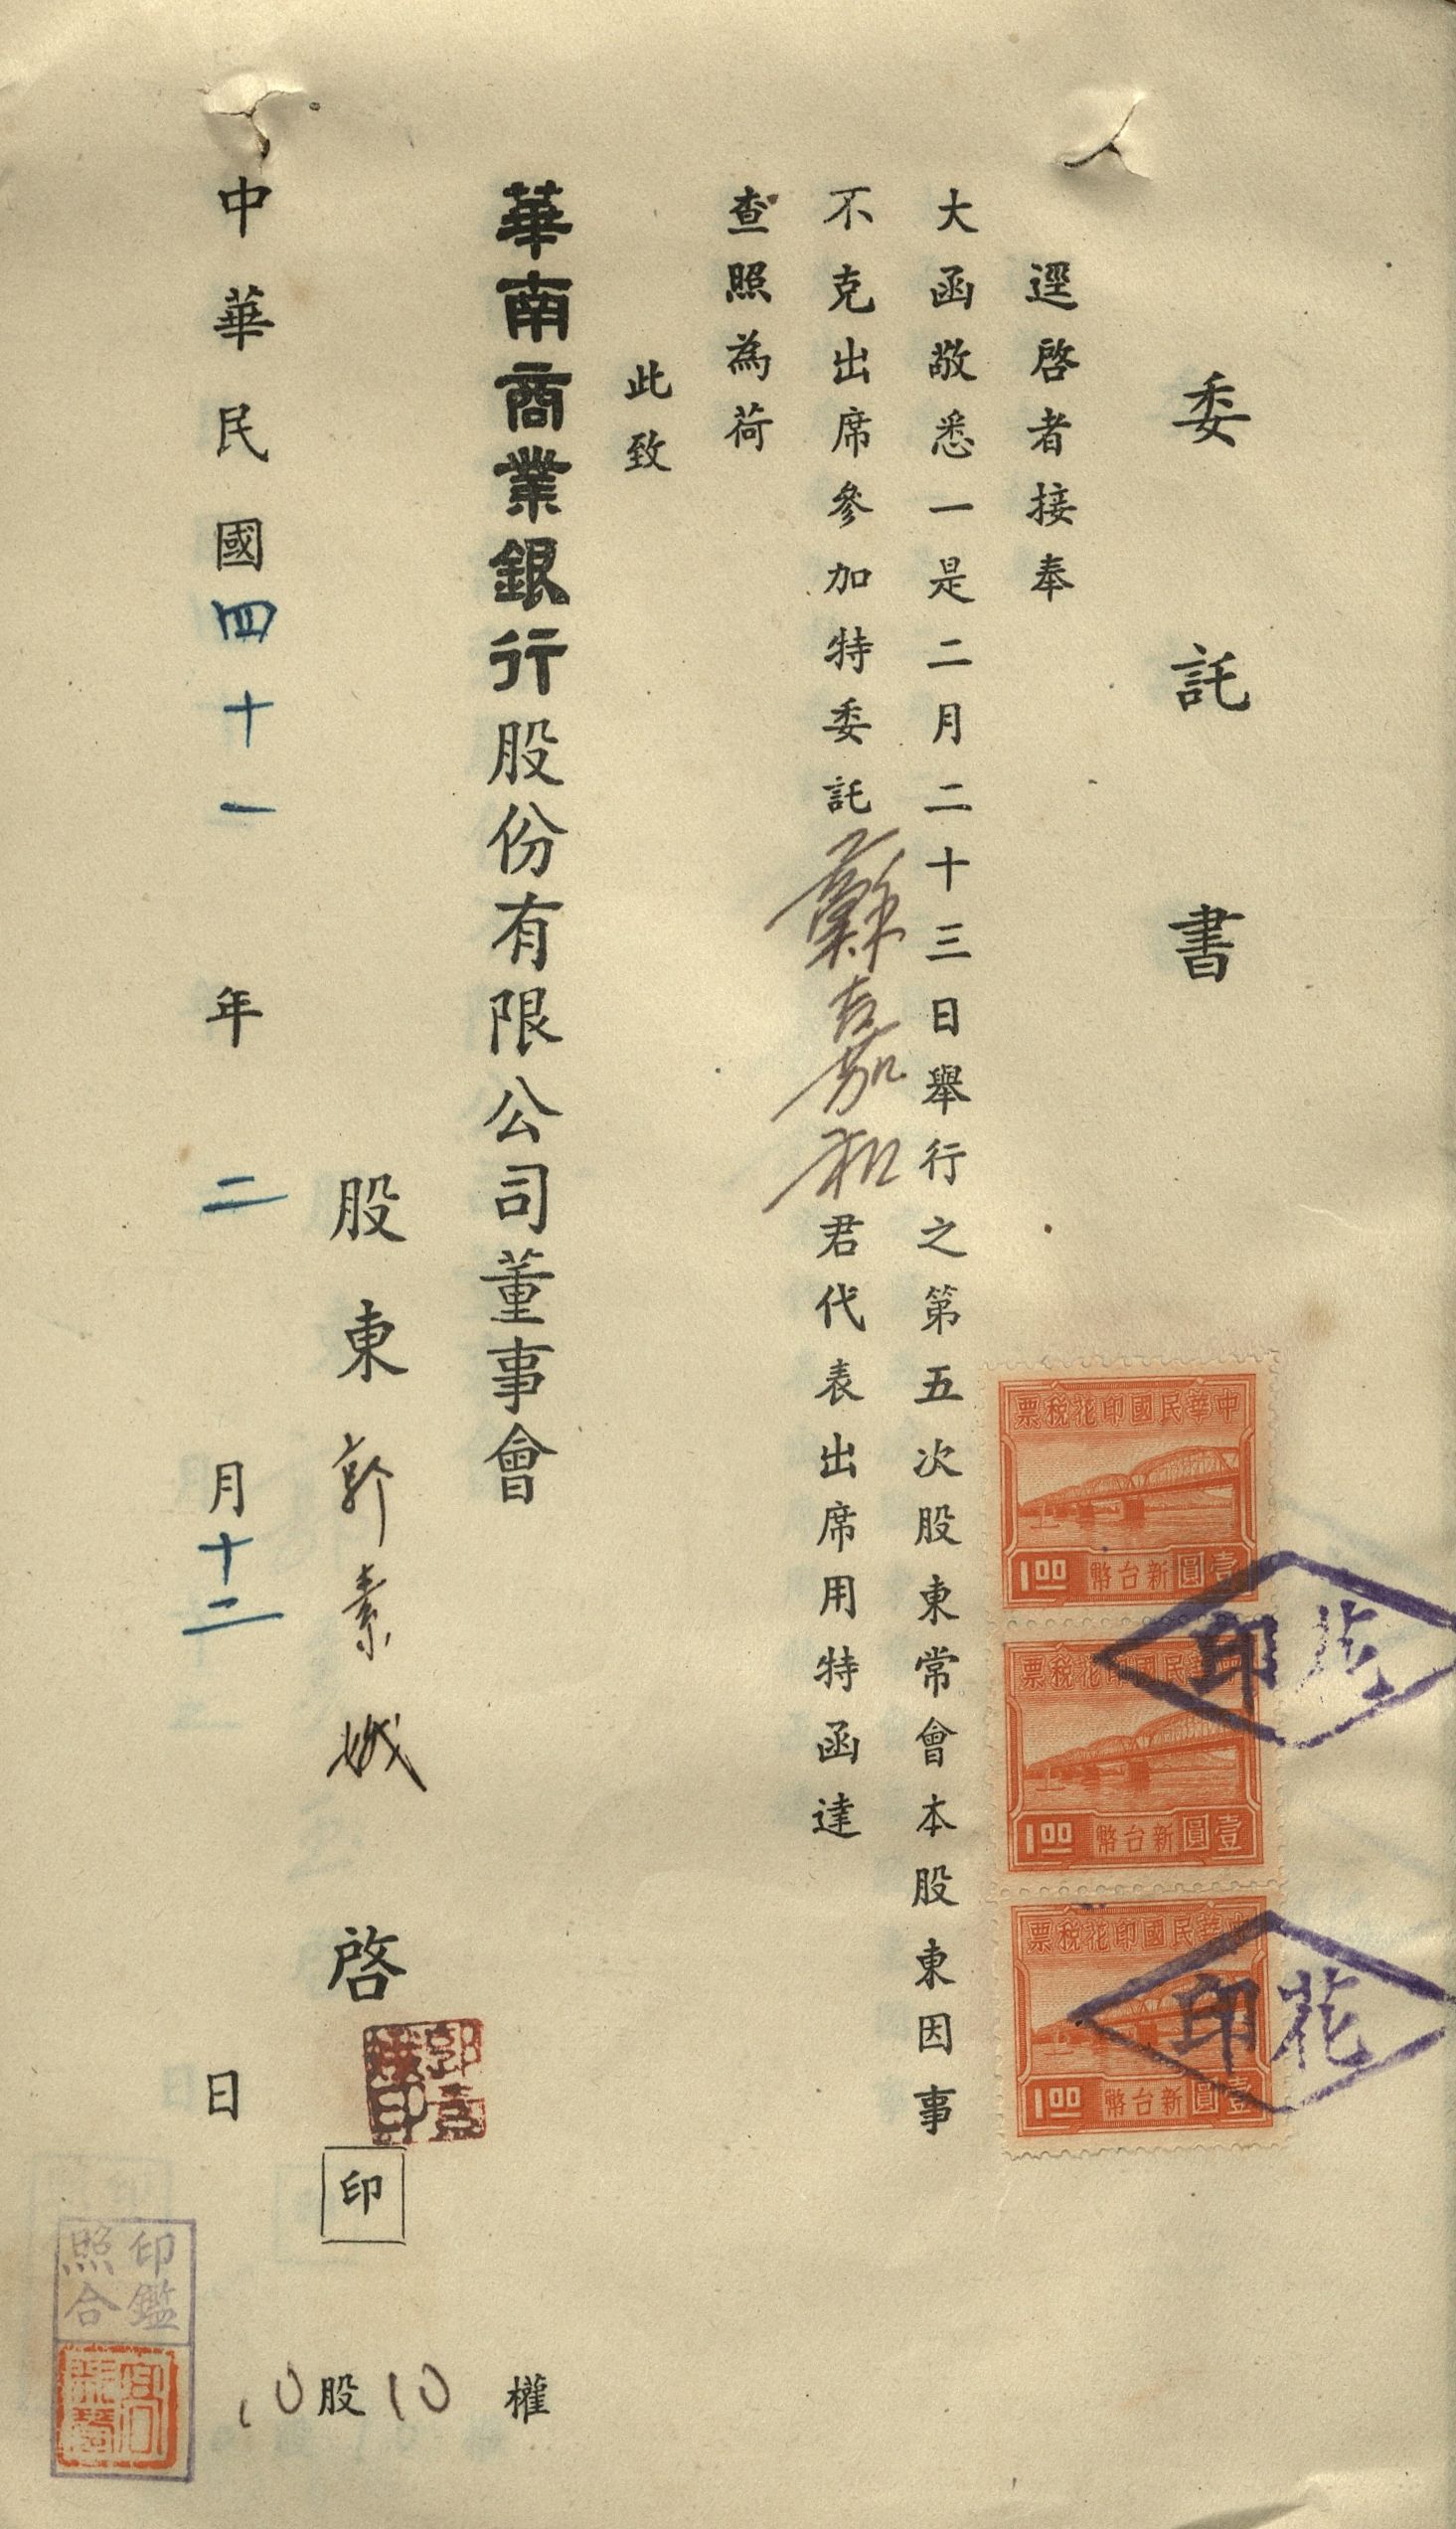 委託書
逕啓者接奉
大函敬悉一是二月二十三日舉行之第五次股東常會本股東因事
不克出席參加特委託蘇嘉和君代表出席用特函達
查照為荷
此致
華南商業銀行股份有限公司董事會
股東郭素娥啓
印
中華民國四十一年二月十二日
10股10權
中華民國印花稅票
1.00 新台幣壹圓
中華民國印花稅票
1.00 新台幣壹圓
中華民國印花稅票
1.00 新台幣壹圓
花印
花印
印鑑
照合